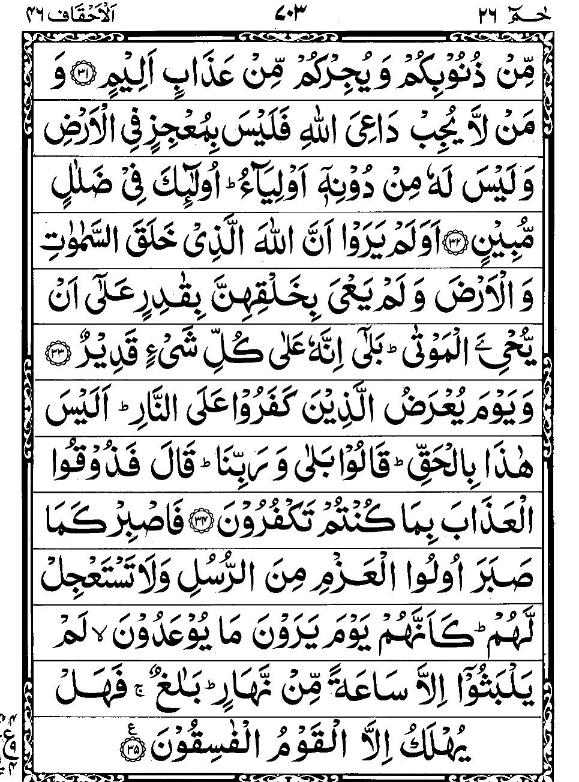 حٰمٓ ٢٦ ٧٠٣ اَلْاَحْقَاف ٤٦
مِّنْ ذُنُوْبِكُمْ وَيُجِرْكُمْ مِّنْ عَذَابٍ اَلِيْمٍ ﴿٣١﴾ وَ
مَنْ لَّا يُجِبْ دَاعِيَ اللّٰهِ فَلَيْسَ بِمُعْجِزٍ فِى الْاَرْضِ
وَلَيْسَ لَهٗ مِنْ دُوْنِهٖٓ اَوْلِيَآءُ ؕ اُولٰٓئِكَ فِيْ ضَلٰلٍ
مُّبِيْنٍ ﴿٣٢﴾ اَوَلَمْ يَرَوْا اَنَّ اللّٰهَ الَّذِيْ خَلَقَ السَّمٰوٰتِ
وَالْاَرْضَ وَلَمْ يَعْيَ بِخَلْقِهِنَّ بِقٰدِرٍ عَلٰٓى اَنْ
يُّحْيِۦَ الْمَوْتٰى ؕ بَلٰٓى اِنَّهٗ عَلٰى كُلِّ شَيْءٍ قَدِيْرٌ ﴿٣٣﴾
وَيَوْمَ يُعْرَضُ الَّذِيْنَ كَفَرُوْا عَلَى النَّارِ ؕ اَلَيْسَ
هٰذَا بِالْحَقِّ ؕ قَالُوْا بَلٰى وَرَبِّنَا ؕ قَالَ فَذُوْقُوا
الْعَذَابَ بِمَا كُنْتُمْ تَكْفُرُوْنَ ﴿٣٤﴾ فَاصْبِرْ كَمَا
صَبَرَ اُولُوا الْعَزْمِ مِنَ الرُّسُلِ وَلَا تَسْتَعْجِلْ
لَّهُمْ ؕ كَاَنَّهُمْ يَوْمَ يَرَوْنَ مَا يُوْعَدُوْنَ ۙ لَمْ
يَلْبَثُوْٓا اِلَّا سَاعَةً مِّنْ نَّهَارٍ ؕ بَلٰغٌ ۚ فَهَلْ
يُهْلَكُ اِلَّا الْقَوْمُ الْفٰسِقُوْنَ ﴿٣٥﴾ ع